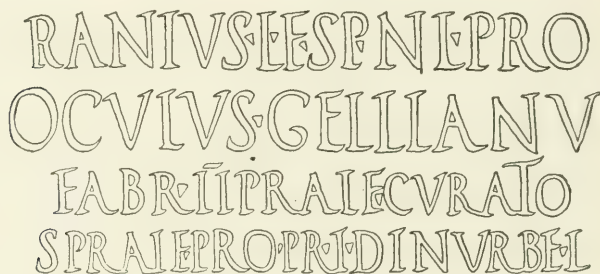 RANIVS·L·E·SP·N·L·PRO
OCVIVS·GELLLANV
FABR·ĪĪPRAIECVRATO
SPRAIE·PRO·PR·I·D·INVRBE·L